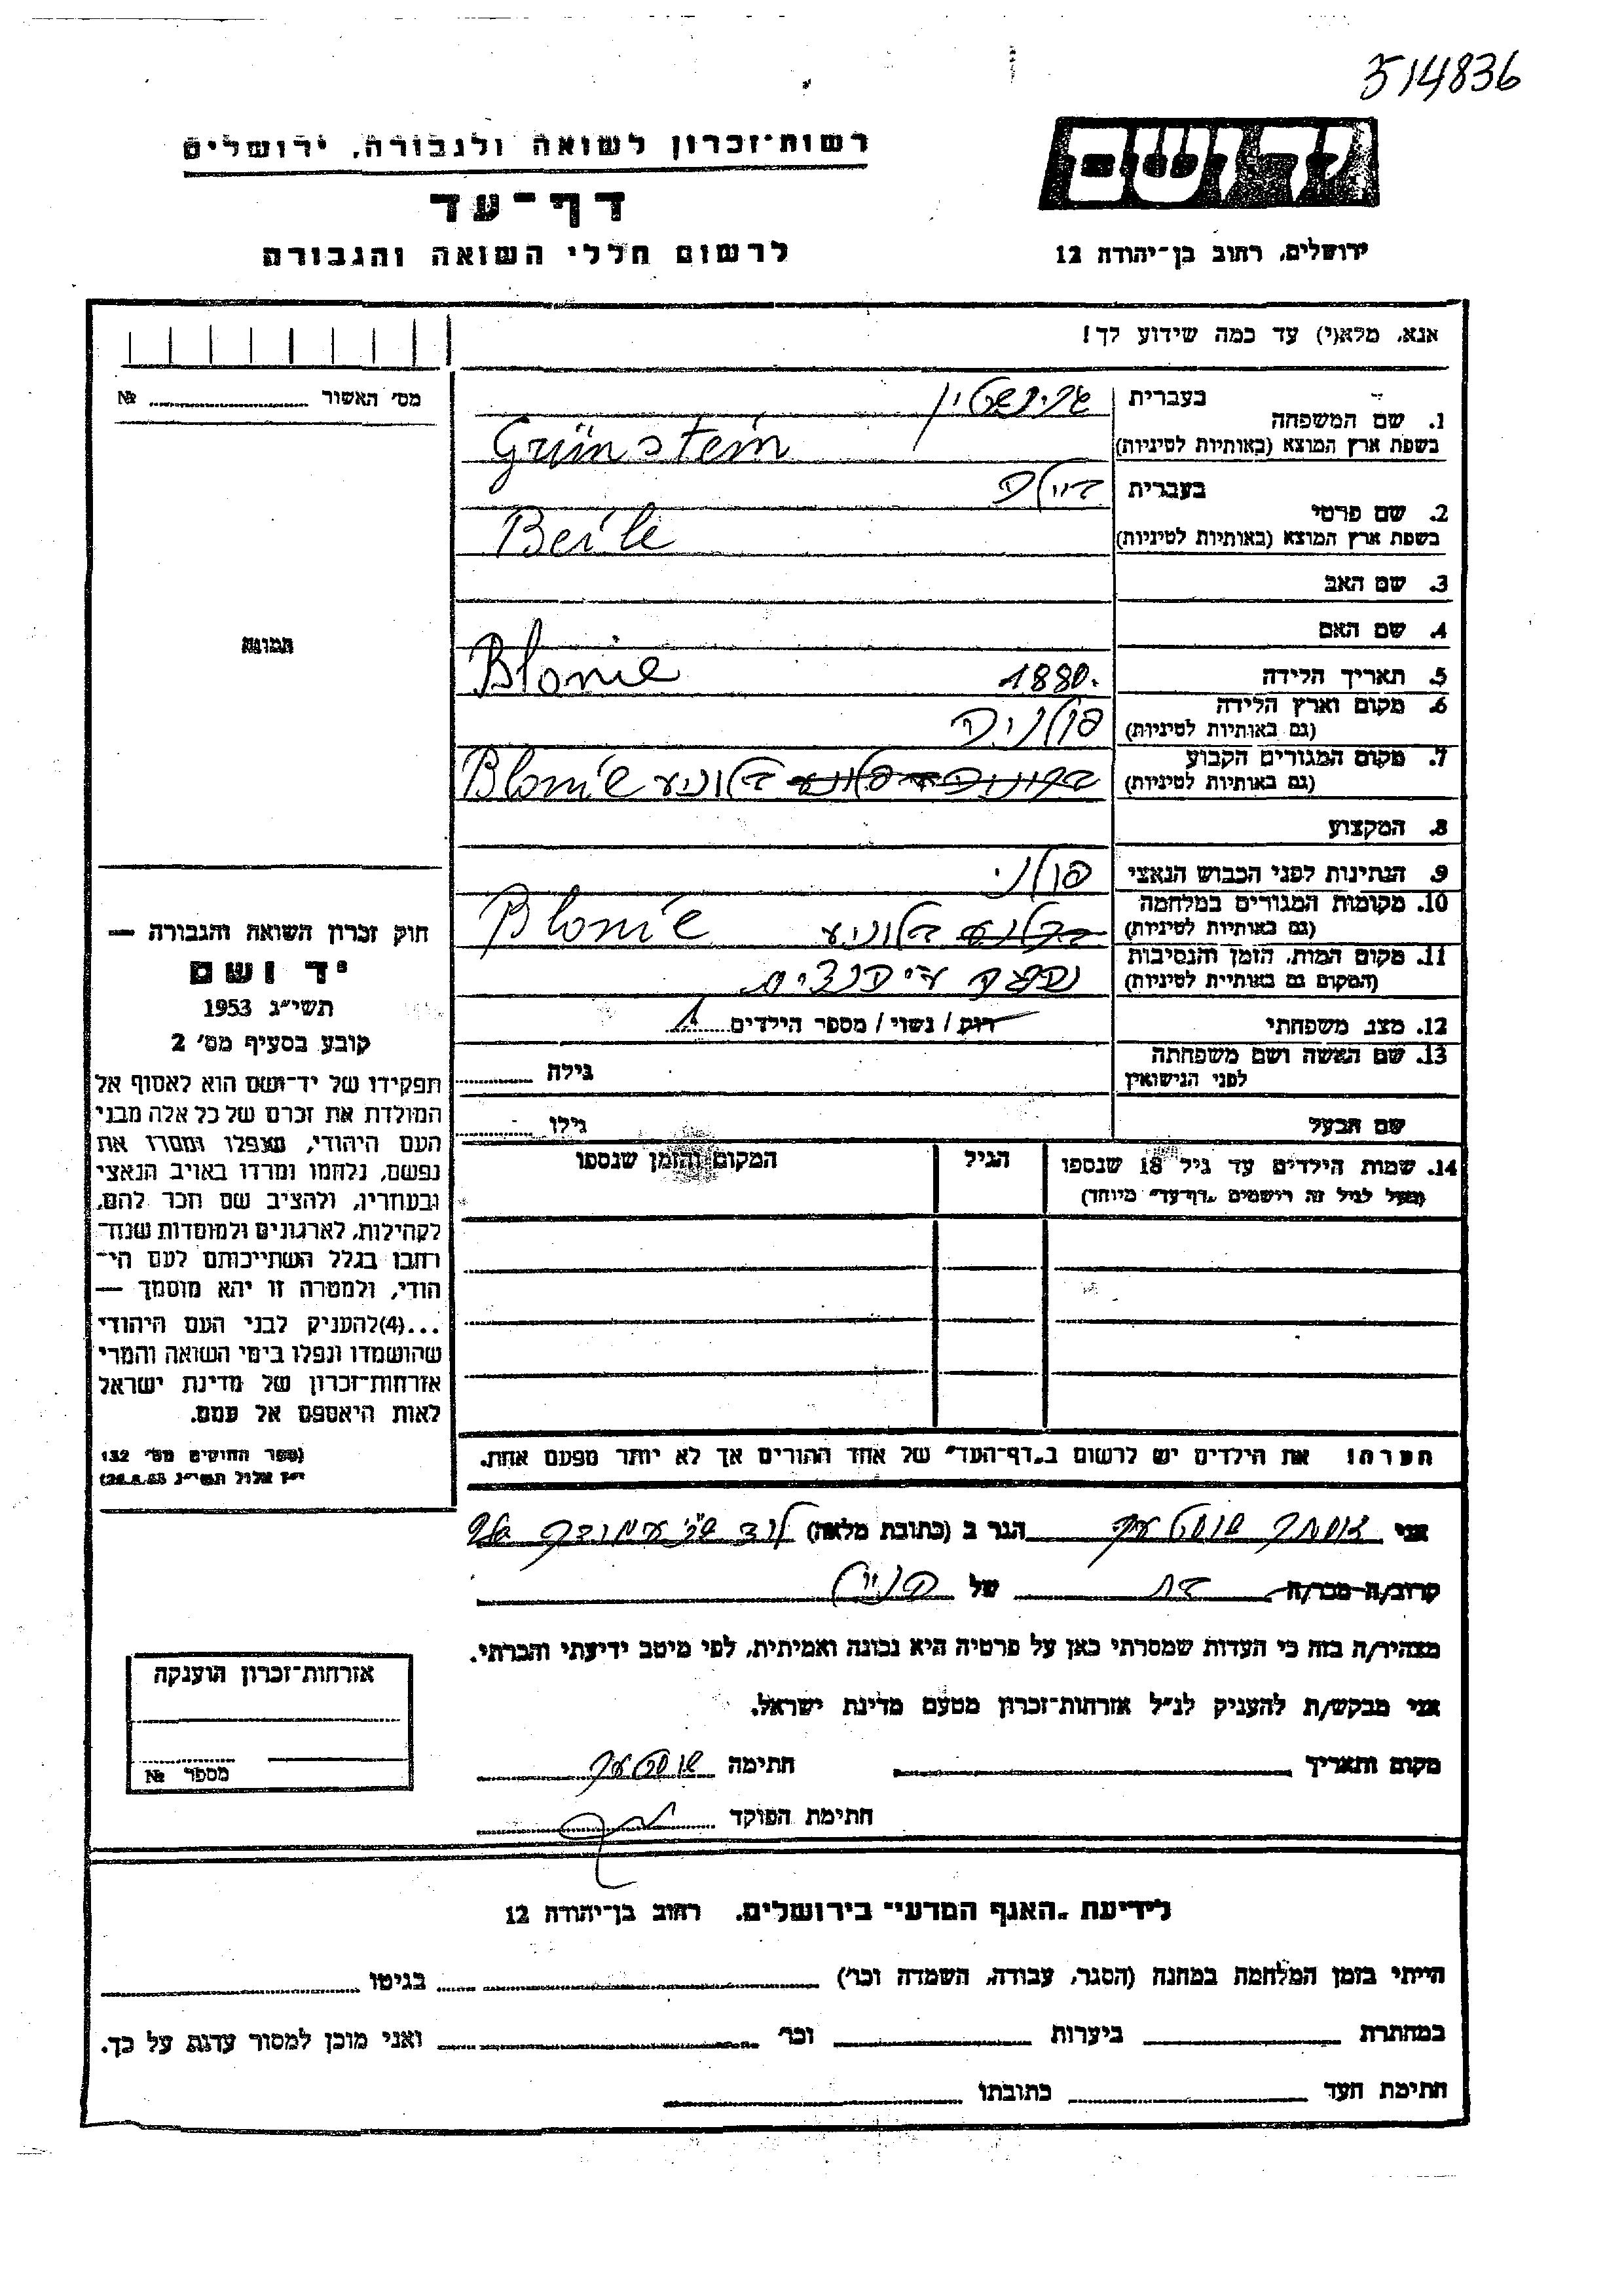 514836
יד ושם
רשות־זכרון לשואה ולגבורה, ירושלים
דף־עד
לרשום חללי השואה והגבורה
ירושלים, רחוב בן־יהודה 12
אנא, מלא(י) עד כמה שידוע לך!
מס׳ האשור № 
1. שם המשפחה בעברית גרינשטיין
בשפת ארץ המוצא (באותיות לטיניות) Grünstein
2. שם פרטי בעברית ביילה
בשפת ארץ המוצא (באותיות לטיניות) Beile
3. שם האב
4. שם האם
תמונה
5. תאריך הלידה 1880. Blonie
6. מקום וארץ הלידה (גם באותיות לטיניות) פולניה
7. מקום המגורים הקבוע (גם באותיות לטיניות) בלוניע Blonie
8. המקצוע
9. הנתינות לפני הכבוש הנאצי פולני
10. מקומות המגורים במלחמה (גם באותיות לטיניות) בלוניע Blonie
11. מקום המות, הזמן והנסיבות (המקום גם באותיות לטיניות)
12. מצב משפחתי רוק / נשוי / מספר הילדים
13. שם האשה ושם משפחתה לפני הנישואין גילה
שם הבעל גילו
14. שמות הילדים עד גיל 18 שנספו הגיל המקום והזמן שנספו
(מעל לגיל זה רושמים „דף־עד״ מיוחד)
חוק זכרון השואה והגבורה —
יד ושם
תשי״ג 1953
קובע בסעיף מס׳ 2
תפקידו של יד־ושם הוא לאסוף אל
המולדת את זכרם של כל אלה מבני
העם היהודי, שנפלו ומסרו את
נפשם, נלחמו ומרדו באויב הנאצי
ובעוזריו, ולהציב שם וזכר להם,
לקהילות, לארגונים ולמוסדות שנח־
רבו בגלל השתייכותם לעם הי־
הודי, ולמטרה זו יהא מוסמך —
...(4) להעניק לבני העם היהודי
שהושמדו ונפלו בימי השואה והמרי
אזרחות־זכרון של מדינת ישראל
לאות היאספם אל עמם.
(ספר החוקים מס׳ 132
י״ז אלול תשי״ג 28.8.53)
הערה! את הילדים יש לרשום ב„דף־העד״ של אחד ההורים אך לא יותר מפעם אחת.
אני הגר ב (כתובת מלאה) לוד
קרוב/ה מכר/ה בת של
מצהיר/ה בזה כי העדות שמסרתי כאן על פרטיה היא נכונה ואמיתית, לפי מיטב ידיעתי והכרתי.
אני מבקש/ת להעניק לנ״ל אזרחות־זכרון מטעם מדינת ישראל.
מקום ותאריך חתימה
חתימת הפוקד
אזרחות־זכרון הוענקה
מספר №
לידיעת „האגף המדעי״ בירושלים, רחוב בן־יהודה 12
הייתי בזמן המלחמה במחנה (הסגר, עבודה, השמדה וכו׳) בגיטו
במחתרת ביערות וכו׳ ואני מוכן למסור עדות על כך.
חתימת העד כתובתו